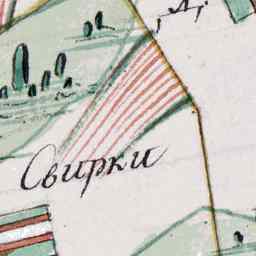 Д:
Свирки